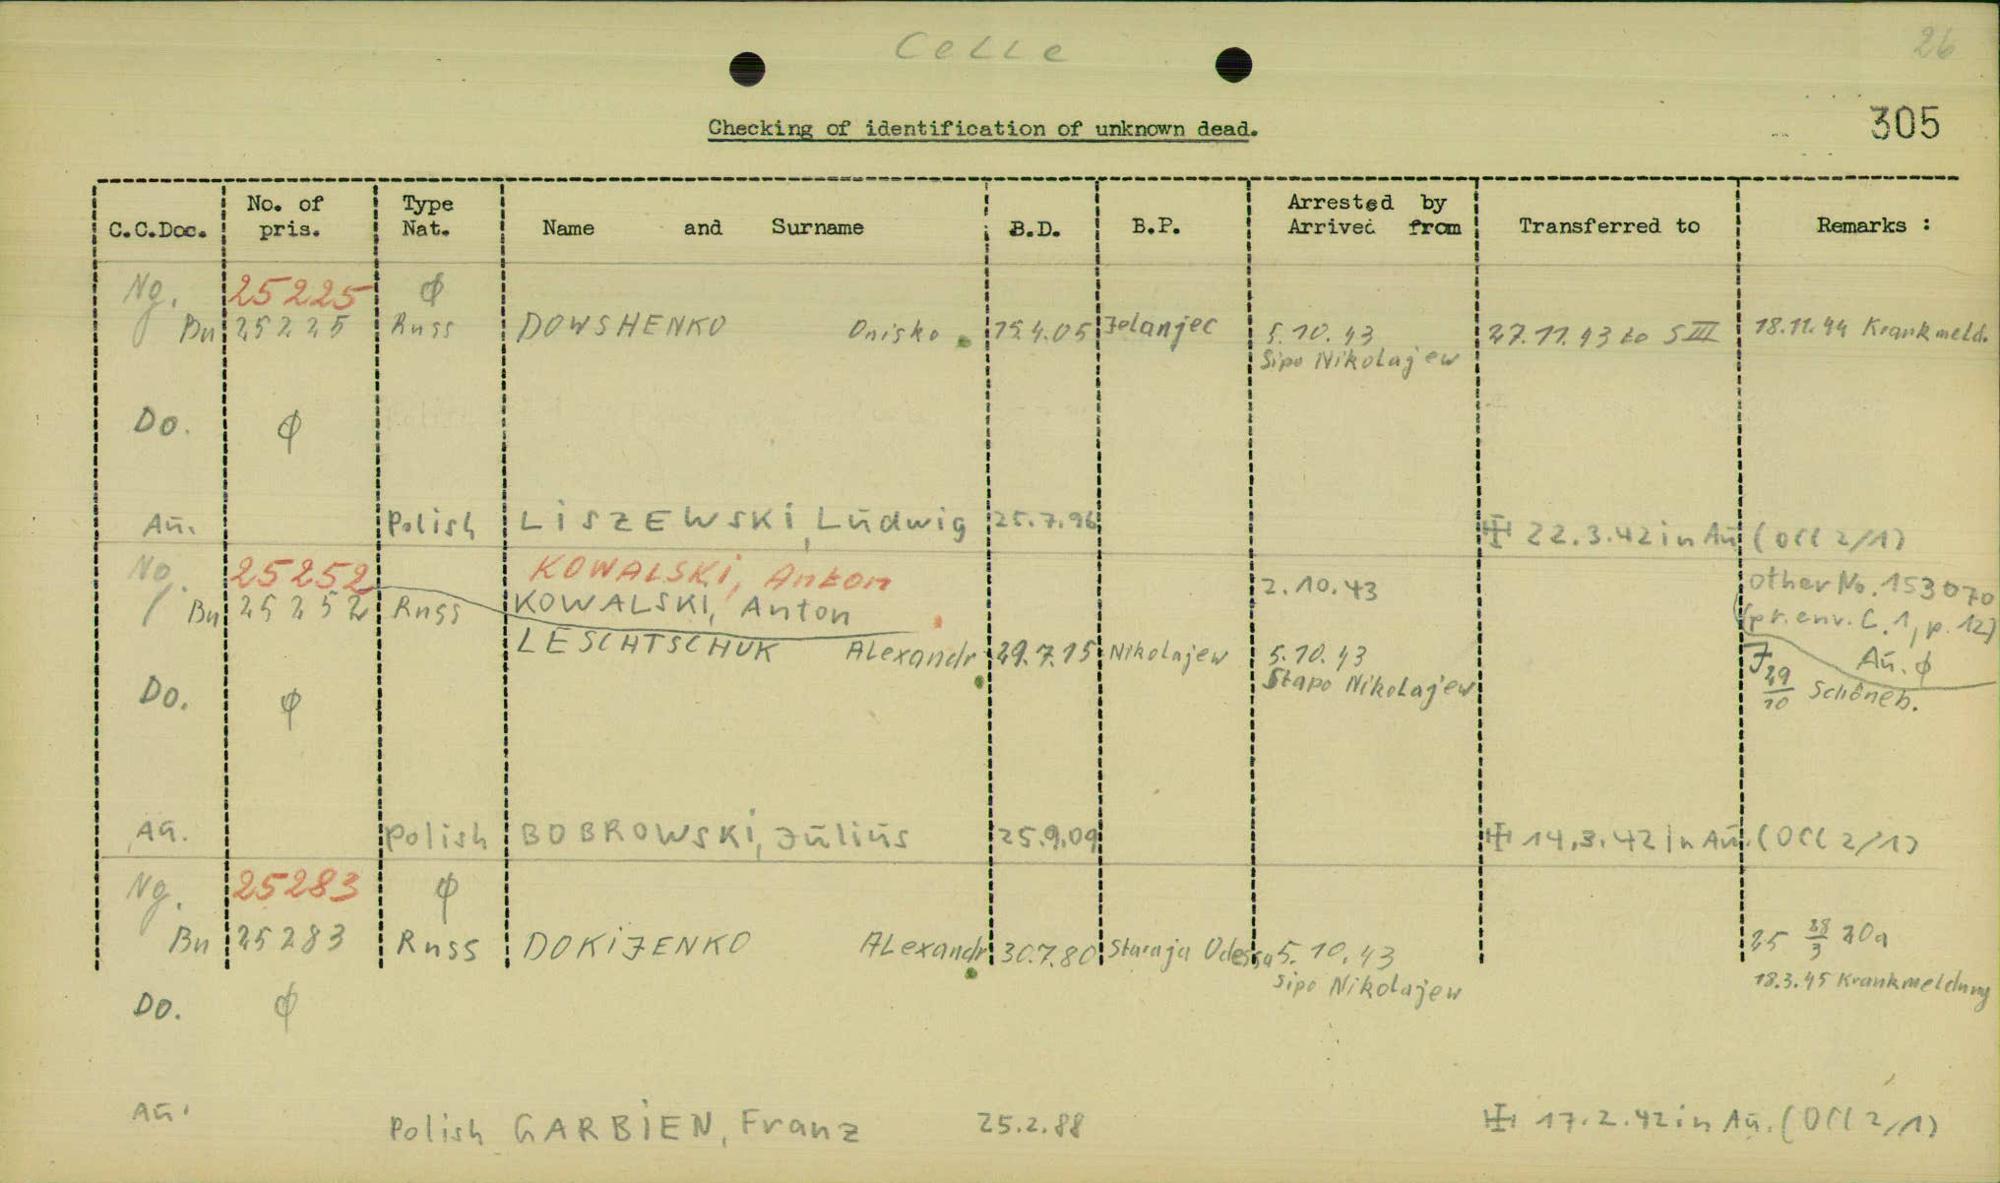 Celle
26
305
Checking of identification of unknown dead.
C.C.Doc. No. of pris. Type Nat. Name and Surname B.D. B.P. Arrested by Arrived from Transferred to Remarks :
Ng. 25225 ϕ
Bu 25225 Russ DOWSHENKO Onisko 15.4.05 Jelanjec 5.10.43 27.11.43 to SIII 18.11.44 Krankmeld.
Sipo Nikolajew
Do. ϕ
Aū. Polish LiSZEWSKi, Lūdwig 25.7.96 22.3.42 in Aū (OCC 2/1)
No. 25252 KOWALSKi, Anton 2.10.43 Other No. 153070
Bu 25252 Russ KOWALSKI, Anton (pr. env. C.1, p. 12)
LESCHTSCHUK Alexandr 29.7.15 Nikolajew 5.10.43 Aū. ϕ
Stapo Nikolajew 29/10 Schöneb.
Do. ϕ
Aū. Polish BOBROWSKi, Jūliūs 25.9.09 14.3.42 in Aū. (OCC 2/1)
Ng. 25283 ϕ
Bu 25283 Russ DOKIJENKO Alexandr 30.7.80 Staraja Odessa 5.10.43 25 28/3 20a
Sipo Nikolajew 18.3.45 Krankmeldung
Do. ϕ
Aū. Polish GARBiEN, Franz 25.2.88 17.2.42 in Aū. (OCC 2/1)